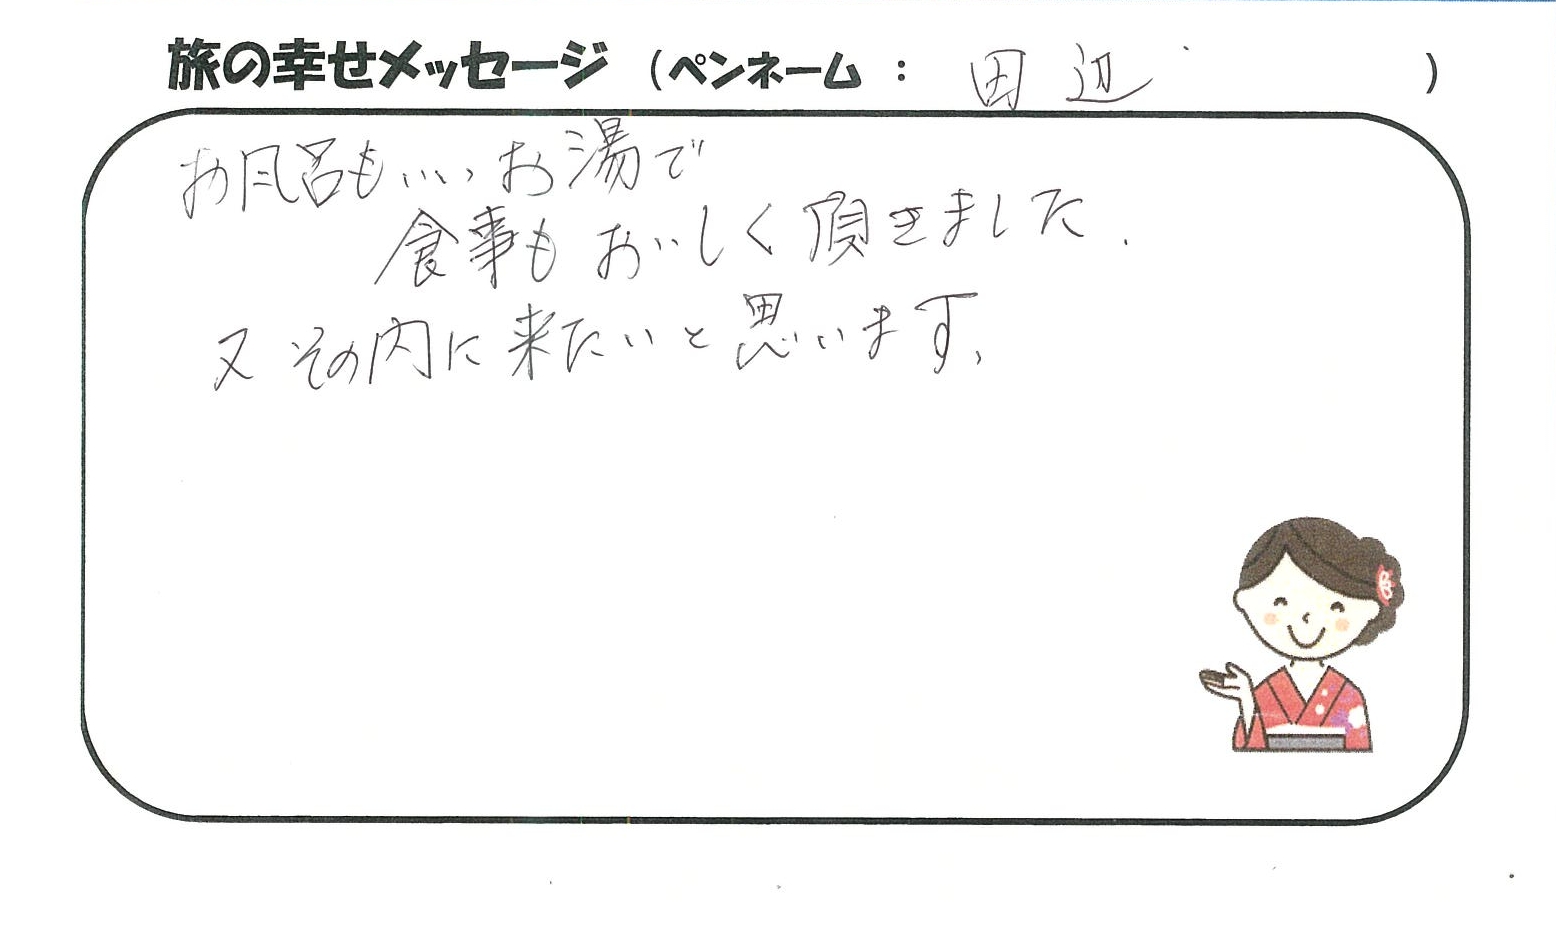 旅の幸せメッセージ (ペンネーム : 田辺 )
お風呂もいいお湯で
食事もおいしく頂きました.
又その内に来たいと思います、